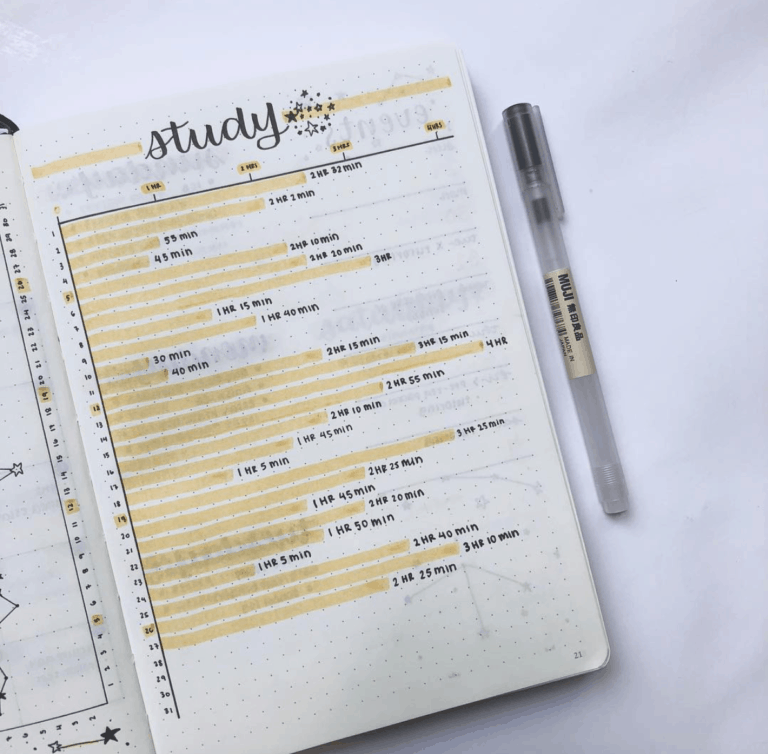 study
1 HR 2 HRS 3 HRS 4 HRS
1 2 HR 32 min
2 2 HR 2 min
3 55 min
4 45 min
5 2HR 10min
6 2 HR 20 min
7 3HR
8 1 HR 15 min
9 1 HR 40 min
10 30 min
11 40 min
12 2HR 15 min
13 3HR 15 min
14 4 HR
15 2 HR 55 min
16 2 HR 10 min
17 1 HR 45min
18 1 HR 5 min
19 3 HR 25min
20 2HR 25 min
21 1 HR 45 min
22 2 HR 20 min
23 1 HR 50 min
24 1 HR 5 min
25 2HR 40 min
26 3 HR 10 min
27 2 HR 25 min
28
29
30
31
21
MUJI 無印良品
MADE IN